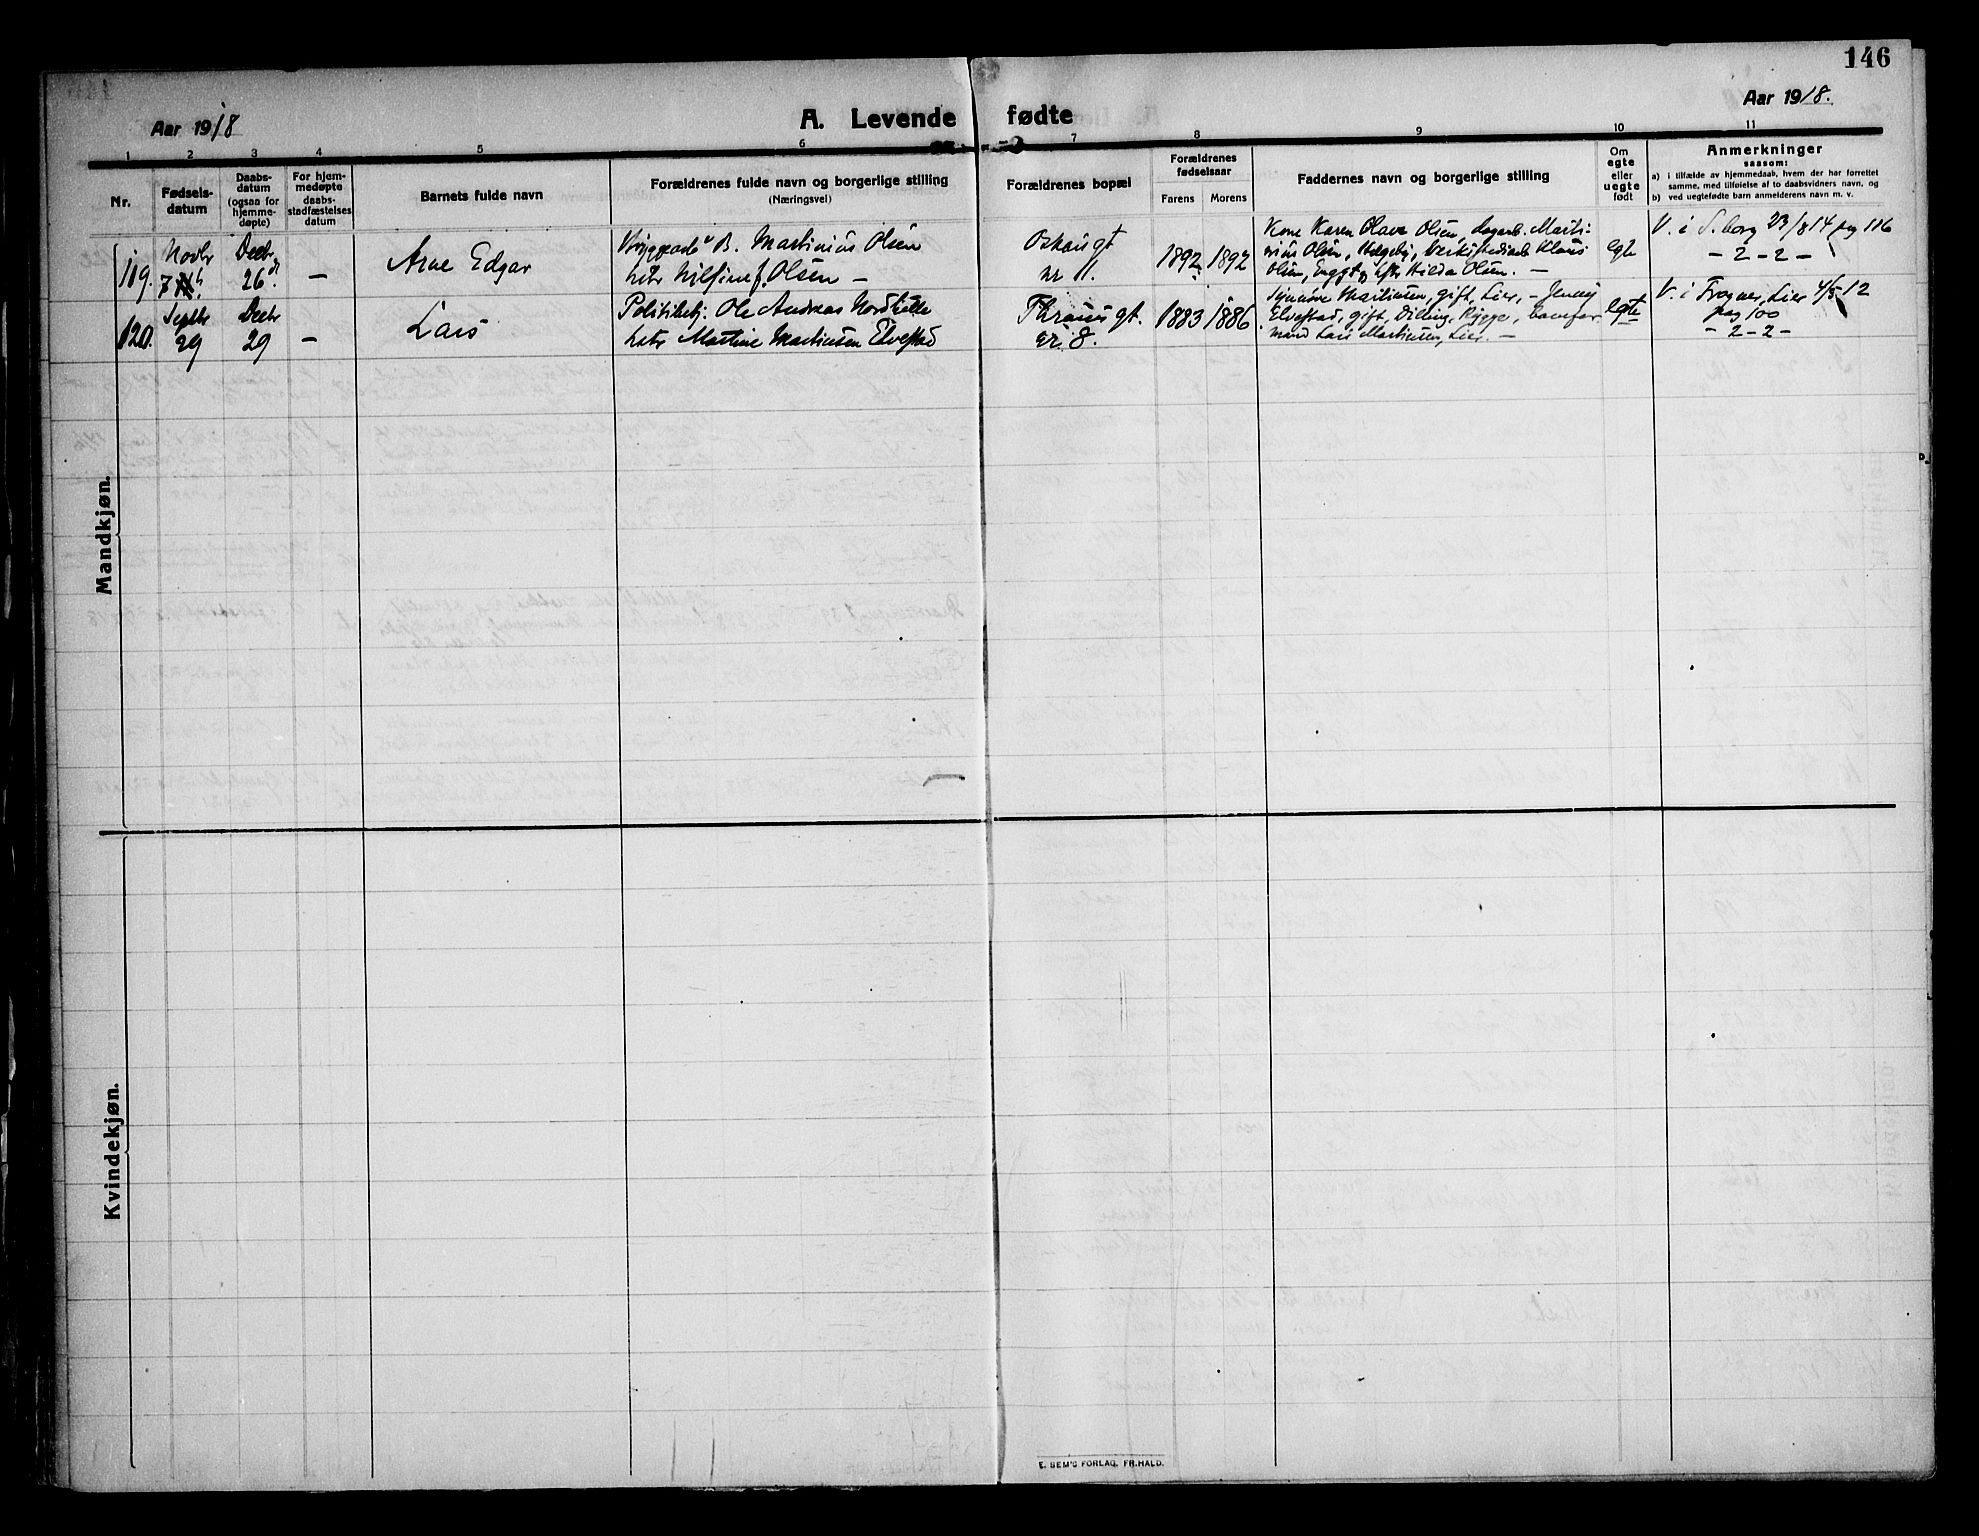 146
Aar 1918
A. Levende fødte
Aar 1918.
1 2 3 4 5 6 7 8 9 10 11
Nr.
Fødsels-
datum
Daabs-
datum
(ogsaa for
hjemme-
døpte)
For hjem-
medøpte
daabs-
stadfæstelses
datum
Barnets fulde navn
Forældrenes fulde navn og borgerlige stilling
(Næringsvei)
Forældrenes bopæl
Forældrenes
fødselsaar
Farens Morens
Faddernes navn og borgerlige stilling
Om
egte
eller
uegte
født
Anmerkninger
saasom:
a) i tilfælde av hjemmedaab, hvem der har forrettet
samme, med tilføielse af to daabsvidners navn, og
b) ved uegtefødte barn anmelderens navn m. v.
Mandkjøn.
119.
Novbr
7
Decbr
26
—
Arne Edgar
B. Martinius Olsen
Olsen —
nr 11.
1892 1892
Kone Karen Olava Olsen, dagarb. Marti-
nius Olsen,
Olsen, Hilda Olsen. —
egte
V. i S.borg 23/8 14 pag 116
- 2 - 2 -
120.
Septbr
29
Decbr
29
—
Lars
Politibetj. Ole Andreas
Martine Martinsen Elvestad
gt.
nr 8.
1883 1886
Martinsen, gift, Lier, - Jenny
Elvestad, gift, Dilling, Rygge,
mand Lars Martinsen, Lier. —
egte
V. i Frogner, Lier 4/5 12
pag 100
- 2 - 2 -
Kvindekjøn.
E. SEM'S FORLAG, FR.HALD.